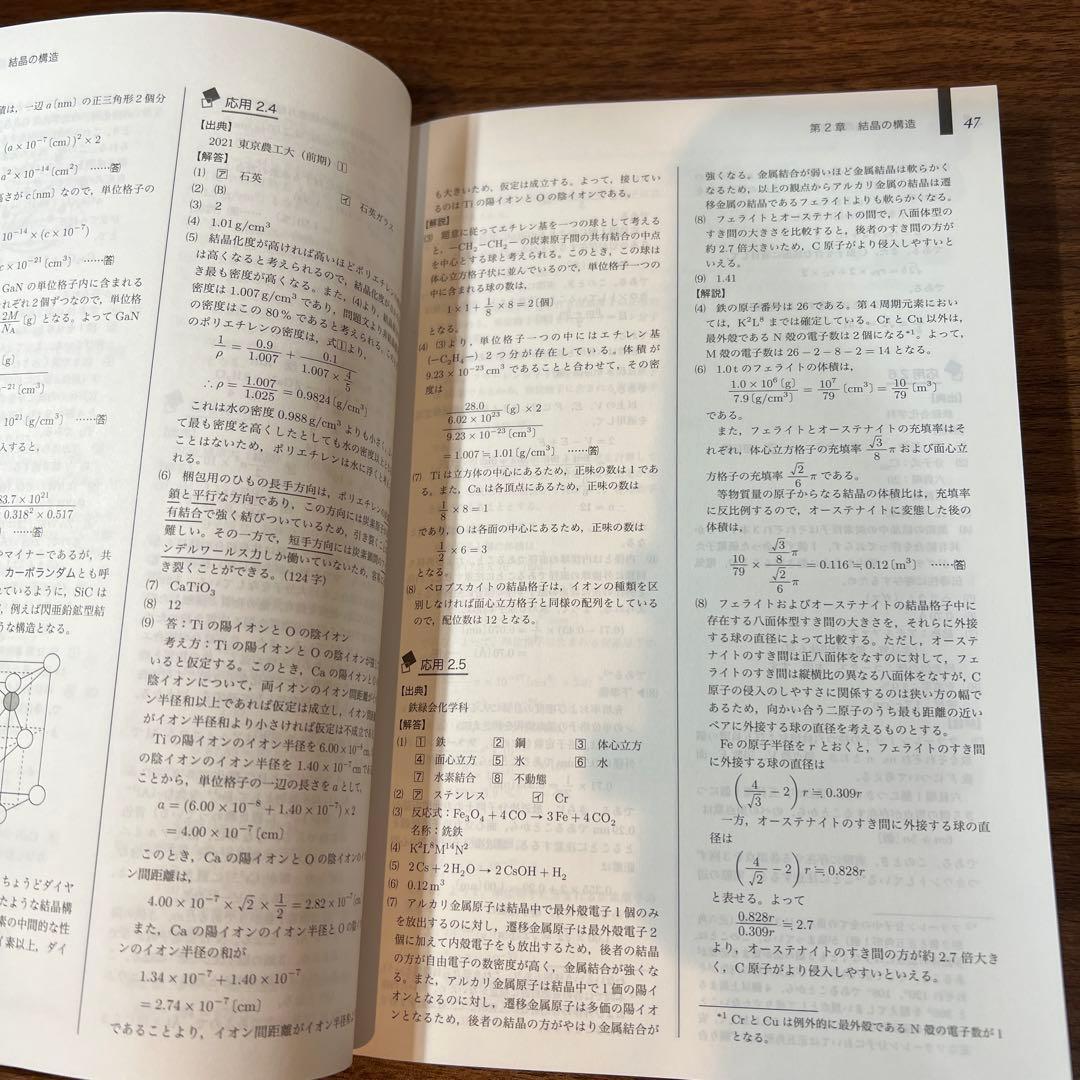 結晶の構造
積は，一辺 a〔nm〕の正三角形 2 個分
(a × 10⁻⁷〔cm〕)² × 2
a² × 10⁻¹⁴〔cm²〕 ……答
高さが c〔nm〕なので，単位格子の
10⁻¹⁴ × (c × 10⁻⁷)
c × 10⁻²¹〔cm³〕 ……答
GaN の単位格子内に含まれる
ぞれ 2 個ずつなので，単位格
2M/N_A〔g〕となる。よって GaN
〔g〕
10⁻²¹〔cm³〕
10²¹〔g/cm³〕 ……答
入すると，
83.7 × 10²¹
0.318² × 0.517
……答
やマイナーであるが，共
カーボランダムとも呼
れているように，SiC は
，例えば閃亜鉛鉱型結
うな構造となる。
ちょうどダイヤ
たような結晶構
素の中間的な性
イ素以上，ダイ
応用 2.4
【出典】
2021 東京農工大（前期）1
【解答】
(1) ア 石英
イ 石英ガラス
(2) (B)
(3) 2
(4) 1.01 g/cm³
(5) 結晶化度が高ければ高いほどポリエチレンの
は高くなると考えられるので，結晶化度が
き最も密度が高くなる。また，(4)より，結晶
密度は 1.007 g/cm³ であり，問題文より非
の密度はこの 80 % であると考えられる。
のポリエチレンの密度は，式1より，
1/ρ = 0.9/1.007 + 0.1/(1.007 × 4/5)
∴ ρ = 1.007/1.025 = 0.9824〔g/cm³〕
これは水の密度 0.988 g/cm³ よりも小さく，
て最も密度を高くしたとしても水の密度以上と
ことはないため，ポリエチレンは水に浮くと考
れる。
(6) 梱包用のひもの長手方向は，ポリエチレンの
鎖と平行な方向であり，この方向には炭素原子
有結合で強く結びついているため，引き裂くこ
難しい。その一方で，短手方向には炭素鎖間の
ンデルワールス力しか働いていないため，容易
き裂くことができる。(124 字)
(7) CaTiO₃
(8) 12
(9) 答：Ti の陽イオンと O の陰イオン
考え方：Ti の陽イオンと O の陰イオンが接
いると仮定する。このとき，Ca の陽イオンと O
陰イオンについて，両イオンのイオン間距離が
ン半径和以上であれば仮定は成立し，イオン間
がイオン半径和より小さければ仮定は不成立であ
Ti の陽イオンのイオン半径を 6.00 × 10⁻⁸ cm
の陰イオンのイオン半径を 1.40 × 10⁻⁷ cm であ
ことから，単位格子の一辺の長さを a として，
a = (6.00 × 10⁻⁸ + 1.40 × 10⁻⁷) × 2
= 4.00 × 10⁻⁷〔cm〕
このとき，Ca の陽イオンと O の陰イオンのイオ
ン間距離は，
4.00 × 10⁻⁷ × √2 × 1/2 = 2.82 × 10⁻⁷
また，Ca の陽イオンのイオン半径と O の陰
ンのイオン半径の和が
1.34 × 10⁻⁷ + 1.40 × 10⁻⁷
= 2.74 × 10⁻⁷〔cm〕
であることより，イオン間距離がイオン半径和よ
第 2 章 結晶の構造 47
も大きいため，仮定は成立する。よって，接してい
るのは Ti の陽イオンと O の陰イオンである。
【解説】
(3) 題意に従ってエチレン基を一つの球として考える
と，−CH₂−CH₂− の炭素原子間の共有結合の中点
を中心とする球と考えられる。このとき，この球は
体心立方格子状に並んでいるので，単位格子一つの
中に含まれる球の数は，
1 × 1 + 1/8 × 8 = 2〔個〕
となる。
(4) (3)より，単位格子一つの中にはエチレン基
(−C₂H₄−) 2 つ分が存在している。体積が
9.23 × 10⁻²³ cm³ であることと合わせて，その密
度は
(28.0/(6.02 × 10²³)〔g〕× 2)/(9.23 × 10⁻²³〔cm³〕)
= 1.007 ≒ 1.01〔g/cm³〕 ……答
(7) Ti は立方体の中心にあるため，正味の数は 1 であ
る。また，Ca は各頂点にあるため，正味の数は
1/8 × 8 = 1
であり，O は各面の中心にあるため，正味の数は
1/2 × 6 = 3
となる。
(8) ペロブスカイトの結晶格子は，イオンの種類を区
別しなければ面心立方格子と同様の配列をしている
ので，配位数は 12 となる。
応用 2.5
【出典】
鉄緑会化学科
【解答】
(1) 1 鉄 2 鋼 3 体心立方
4 面心立方 5 氷 6 水
7 水素結合 8 不動態
(2) ア ステンレス イ Cr
(3) 反応式：Fe₃O₄ + 4 CO → 3 Fe + 4 CO₂
名称：銑鉄
(4) K²L⁸M¹⁴N²
(5) 2 Cs + 2 H₂O → 2 CsOH + H₂
(6) 0.12 m³
(7) アルカリ金属原子は結晶中で最外殻電子 1 個のみ
を放出するのに対し，遷移金属原子は最外殻電子 2
個に加えて内殻電子をも放出するため，後者の結晶
の方が自由電子の数密度が高く，金属結合が強くな
る。また，アルカリ金属原子は結晶中で 1 価の陽イ
オンとなるのに対し，遷移金属原子は多価の陽イオ
ンとなるため，後者の結晶の方がやはり金属結合が
強くなる。金属結合が弱いほど金属結晶は軟らかく
なるため，以上の観点からアルカリ金属の結晶は遷
移金属の結晶であるフェライトよりも軟らかくなる。
(8) フェライトとオーステナイトの間で，八面体型の
すき間の大きさを比較すると，後者のすき間の方が
約 2.7 倍大きいため，C 原子がより侵入しやすいと
いえる。
(9) 1.41
【解説】
(4) 鉄の原子番号は 26 である。第 4 周期元素におい
ては，K²L⁸ までは確定している。Cr と Cu 以外は，
最外殻である N 殻の電子数は 2 個になる*¹。よって，
M 殻の電子数は 26 − 2 − 8 − 2 = 14 となる。
(6) 1.0 t のフェライトの体積は，
1.0 × 10⁶〔g〕/7.9〔g/cm³〕 = 10⁷/79〔cm³〕 = 10/79〔m³〕
である。
また，フェライトとオーステナイトの充填率はそ
れぞれ，体心立方格子の充填率 √3/8 π および面心立
方格子の充填率 √2/6 π である。
等物質量の原子からなる結晶の体積比は，充填率
に反比例するので，オーステナイトに変態した後の
体積は，
10/79 × (√3/8 π)/(√2/6 π) = 0.116 ≒ 0.12〔m³〕 ……答
(8) フェライトおよびオーステナイトの結晶格子中に
存在する八面体型すき間の大きさを，それらに外接
する球の直径によって比較する。ただし，オーステ
ナイトのすき間は正八面体をなすのに対して，フェ
ライトのすき間は縦横比の異なる八面体をなすが，C
原子の侵入のしやすさに関係するのは狭い方の幅で
あるため，向かい合う二原子のうち最も距離の近い
ペアに外接する球の直径を考えるものとする。
Fe の原子半径を r とおくと，フェライトのすき間
に外接する球の直径は
(4/√3 − 2) r ≒ 0.309r
一方，オーステナイトのすき間に外接する球の直
径は
(4/√2 − 2) r ≒ 0.828r
と表せる。よって
0.828r/0.309r ≒ 2.7
より，オーステナイトのすき間の方が約 2.7 倍大き
く，C 原子がより侵入しやすいといえる。
*¹ Cr と Cu は例外的に最外殻である N 殻の電子数が 1
となる。